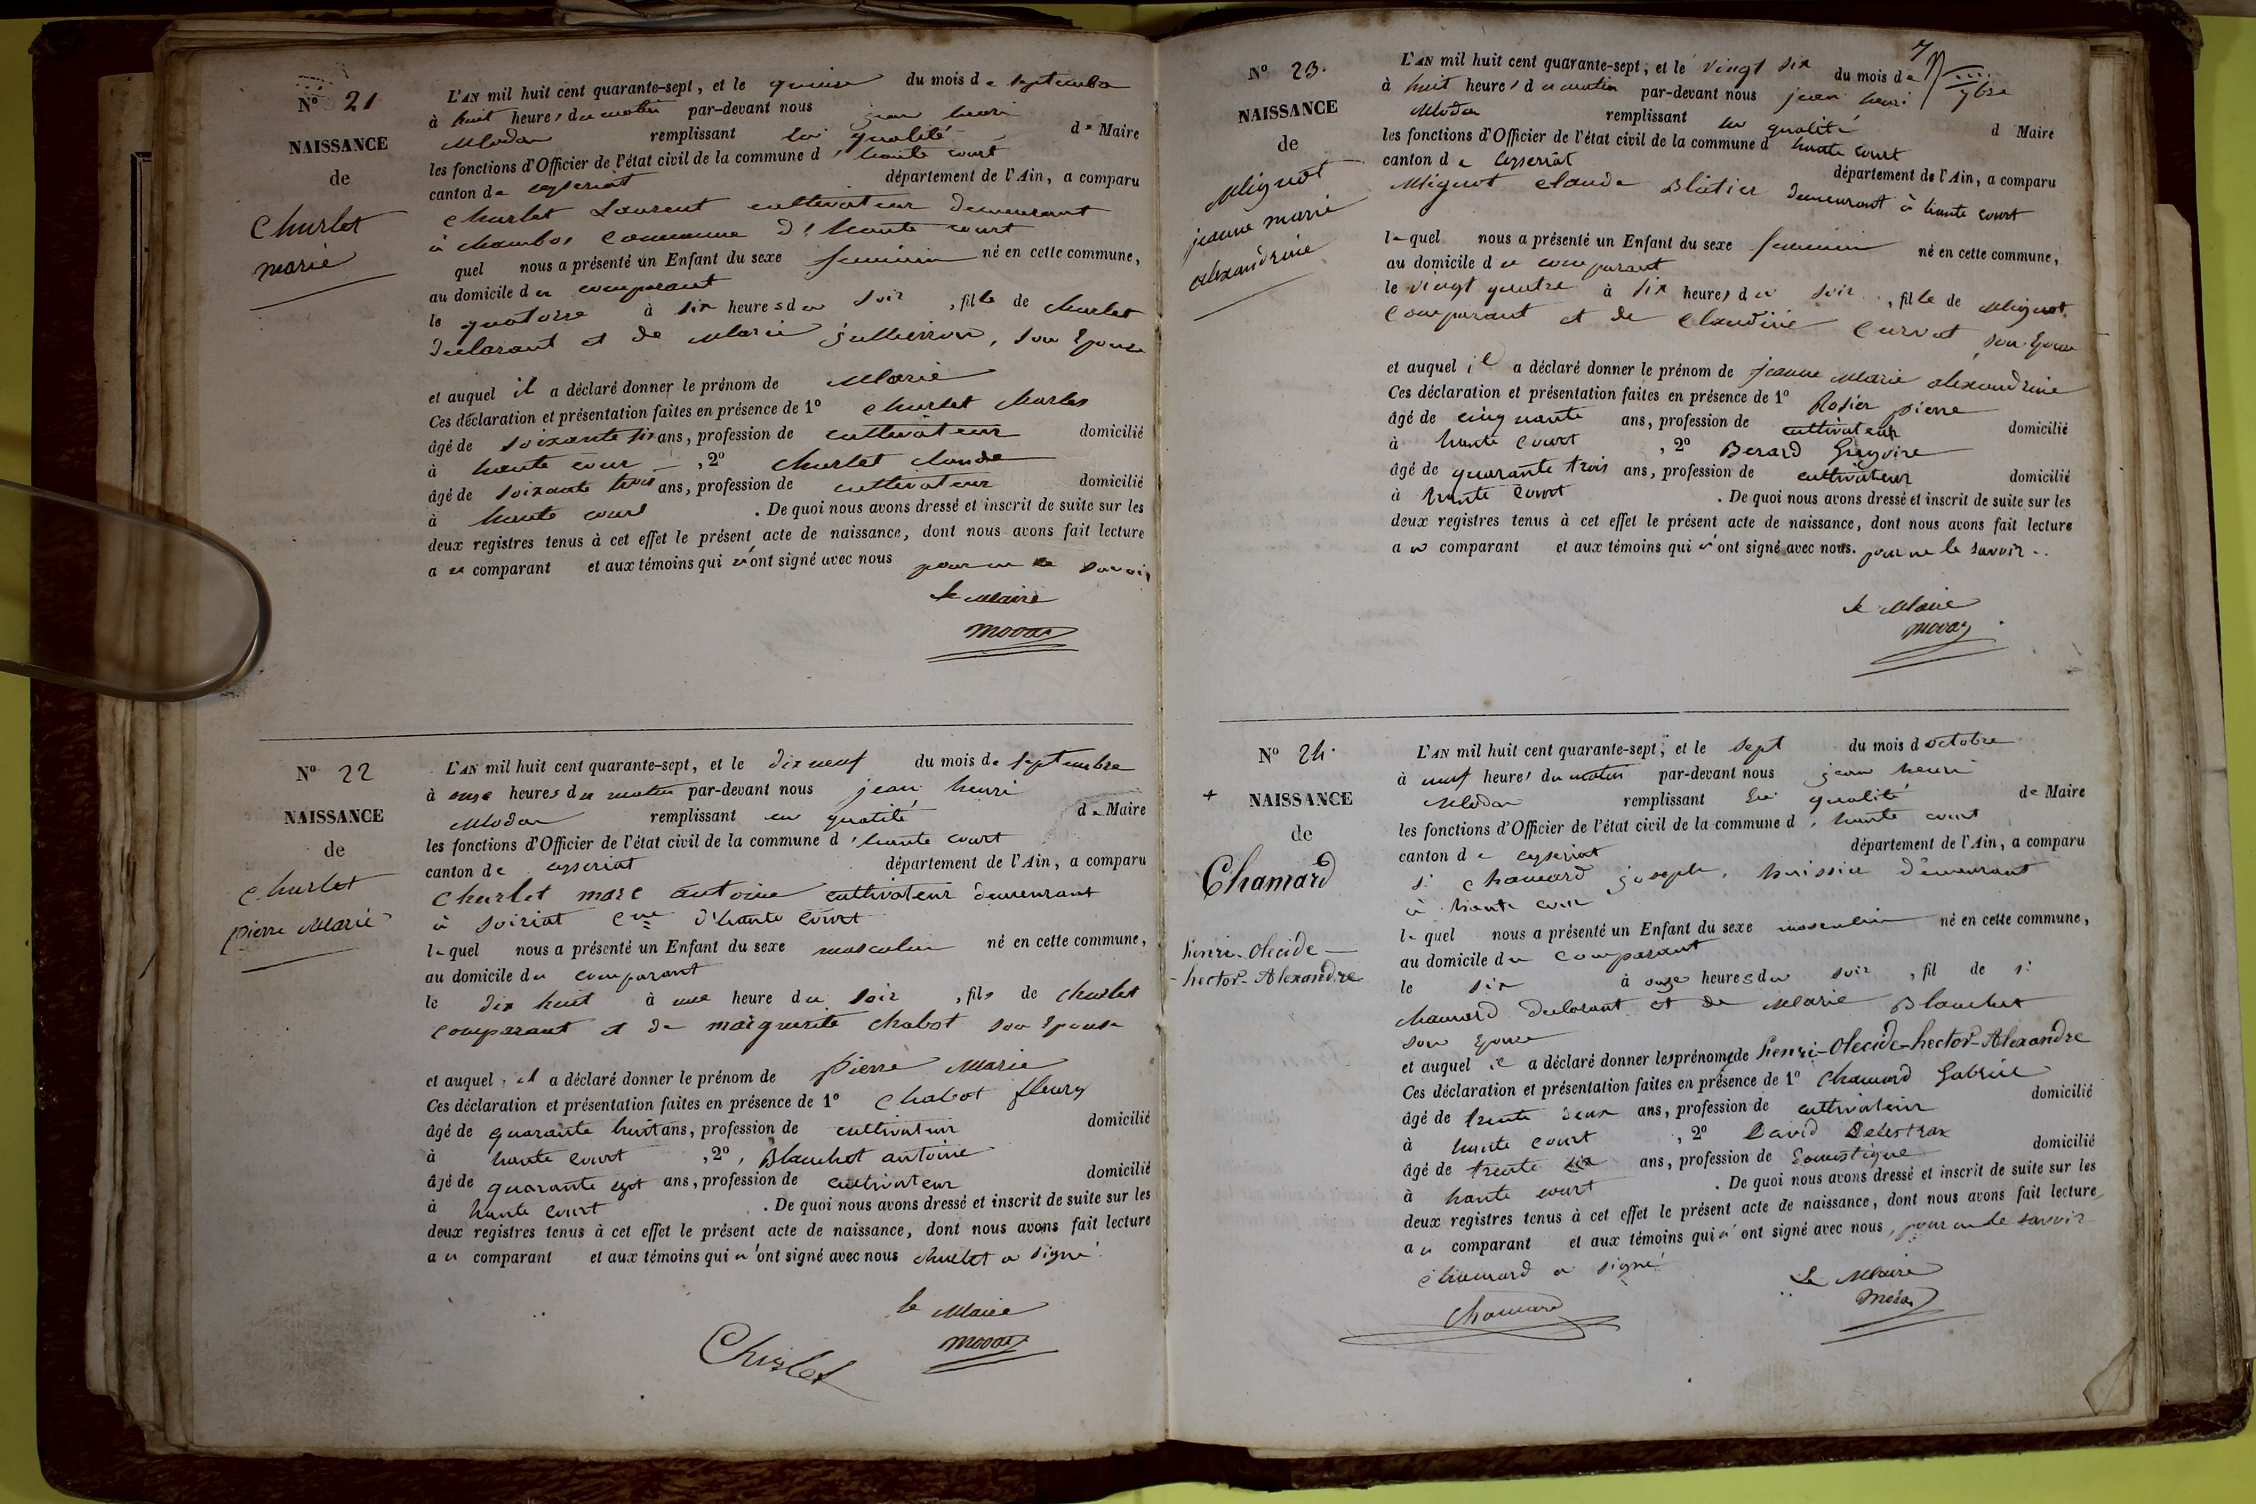 N° 21
NAISSANCE
de
Churlet
marie
L'AN mil huit cent quarante-sept, et le quinze du mois de septembre
à huit heures du matin par-devant nous jean henri
Modar remplissant en qualité de Maire
les fonctions d'Officier de l'état civil de la commune d'haute court
canton de ceyseriat département de l'Ain, a comparu
Churlet Laurent cultivateur demeurant
à chambos Commune d'haute court
quel nous a présenté un Enfant du sexe feminin né en cette commune,
au domicile du comparant
le quatorze à six heures du soir, fille de Churlet
declarant et de Marie son Epouse
et auquel il a déclaré donner le prénom de Marie
Ces déclaration et présentation faites en présence de 1° Churlet Charles
âgé de soixante six ans, profession de cultivateur domicilié
à haute cour, 2° Churlet claude
âgé de soixante trois ans, profession de cultivateur domicilié
à haute court. De quoi nous avons dressé et inscrit de suite sur les
deux registres tenus à cet effet le présent acte de naissance, dont nous avons fait lecture
au comparant et aux témoins qui n'ont signé avec nous pour ne le savoir
le Maire
modar
N° 22
NAISSANCE
de
Churlet
pierre Marie
L'AN mil huit cent quarante-sept, et le dix neuf du mois de septembre
à onze heures du matin par-devant nous jean henri
Modar remplissant en qualité de Maire
les fonctions d'Officier de l'état civil de la commune d'haute court
canton de ceyseriat département de l'Ain, a comparu
Churlet marc antoine cultivateur demeurant
à soiriat Cne d'haute court
lequel nous a présenté un Enfant du sexe masculin né en cette commune,
au domicile du comparant
le dix huit à une heure du soir, fils de Churlet
comparant et de marguerite chabot son Epouse
et auquel il a déclaré donner le prénom de Pierre Marie
Ces déclaration et présentation faites en présence de 1° Chabot fleury
âgé de quarante huit ans, profession de cultivateur domicilié
à haute court, 2° Blanchet antoine
âgé de quarante sept ans, profession de cultivateur domicilié
à haute court. De quoi nous avons dressé et inscrit de suite sur les
deux registres tenus à cet effet le présent acte de naissance, dont nous avons fait lecture
au comparant et aux témoins qui n'ont signé avec nous churlet a signé
le Maire
modar
Churlet
7
N° 23.
NAISSANCE
de
Mignot
jeanne marie
alexandrine
L'AN mil huit cent quarante-sept, et le vingt six du mois de 7bre
à huit heures du matin par-devant nous jean henri
Modar remplissant en qualité d Maire
les fonctions d'Officier de l'état civil de la commune d haute court
canton de ceyseriat département de l'Ain, a comparu
Mignot Claude Blatier demeurant à haute court
lequel nous a présenté un Enfant du sexe feminin né en cette commune,
au domicile du comparant
le vingt quatre à six heures du soir, fille de Mignot
comparant et de Claudine Curvat son Epouse
et auquel il a déclaré donner le prénom de jeanne Marie alexandrine
Ces déclaration et présentation faites en présence de 1° Rosier pierre
âgé de cinquante ans, profession de cultivateur domicilié
à haute court, 2° Berard Gregoire
âgé de quarante trois ans, profession de cultivateur domicilié
à haute court. De quoi nous avons dressé et inscrit de suite sur les
deux registres tenus à cet effet le présent acte de naissance, dont nous avons fait lecture
au comparant et aux témoins qui n'ont signé avec nous. pour ne le savoir
le Maire
modar
N° 24.
+ NAISSANCE
de
Chamard
henri-Olecide-
-hector-Alexandre
L'AN mil huit cent quarante-sept, et le sept du mois d'octobre
à neuf heures du matin par-devant nous jean henri
Modar remplissant en qualité de Maire
les fonctions d'Officier de l'état civil de la commune d'haute court
canton de ceyseriat département de l'Ain, a comparu
sr Chamard joseph, huissier demeurant
à haute cour
lequel nous a présenté un Enfant du sexe masculin né en cette commune,
au domicile du comparant
le six à onze heures du soir, fil de sr
chamard declarant et de Marie Blanchet
son Epouse
et auquel il a déclaré donner les prénoms de henri-Olecide-hector-Alexandre
Ces déclaration et présentation faites en présence de 1° Chamard Gabriel
âgé de trente deux ans, profession de cultivateur domicilié
à haute court, 2° David Delestrax
âgé de trente six ans, profession de Domestique domicilié
à haute court. De quoi nous avons dressé et inscrit de suite sur les
deux registres tenus à cet effet le présent acte de naissance, dont nous avons fait lecture
au comparant et aux témoins qui n'ont signé avec nous, pour ne le savoir
Chamard a signé
Le Maire
Chamard
modar